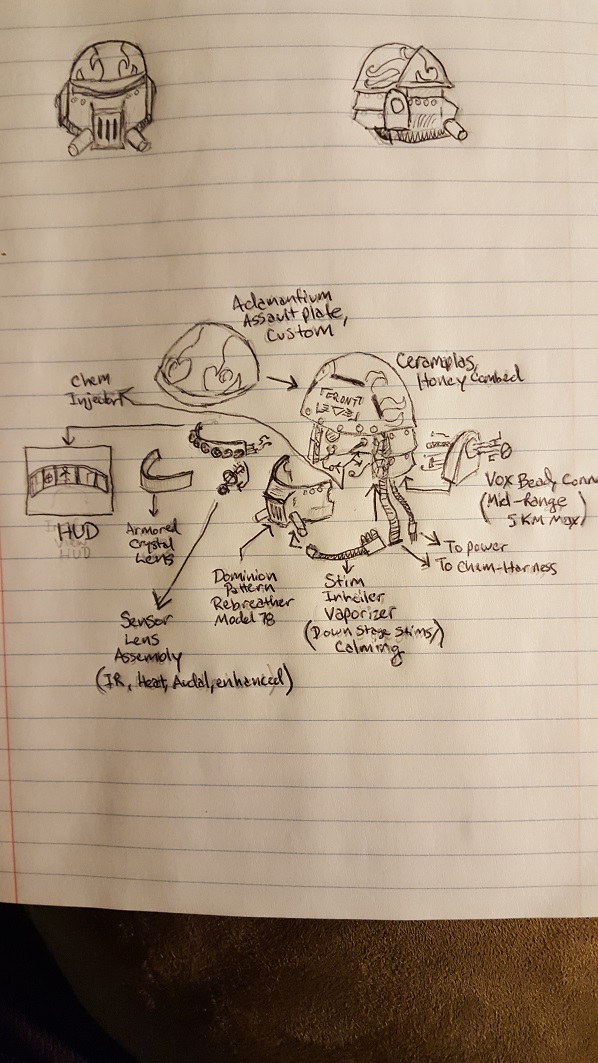 Adamantium
Assault plate,
Custom
Ceramplas,
Honey Combed
Chem
Injector
FRONT
HUD
Armored
Crystal
Lens
Vox Bead
(Mid-Range
5 KM Max)
To power
To Chem-Harness
Dominion
Pattern
Rebreather
Model 78
Stim
Inhaler
Vaporizer
(Down Stage Stims/
Calming)
Sensor
Lens
Assembly
(IR, Heat, Audal, enhanced)